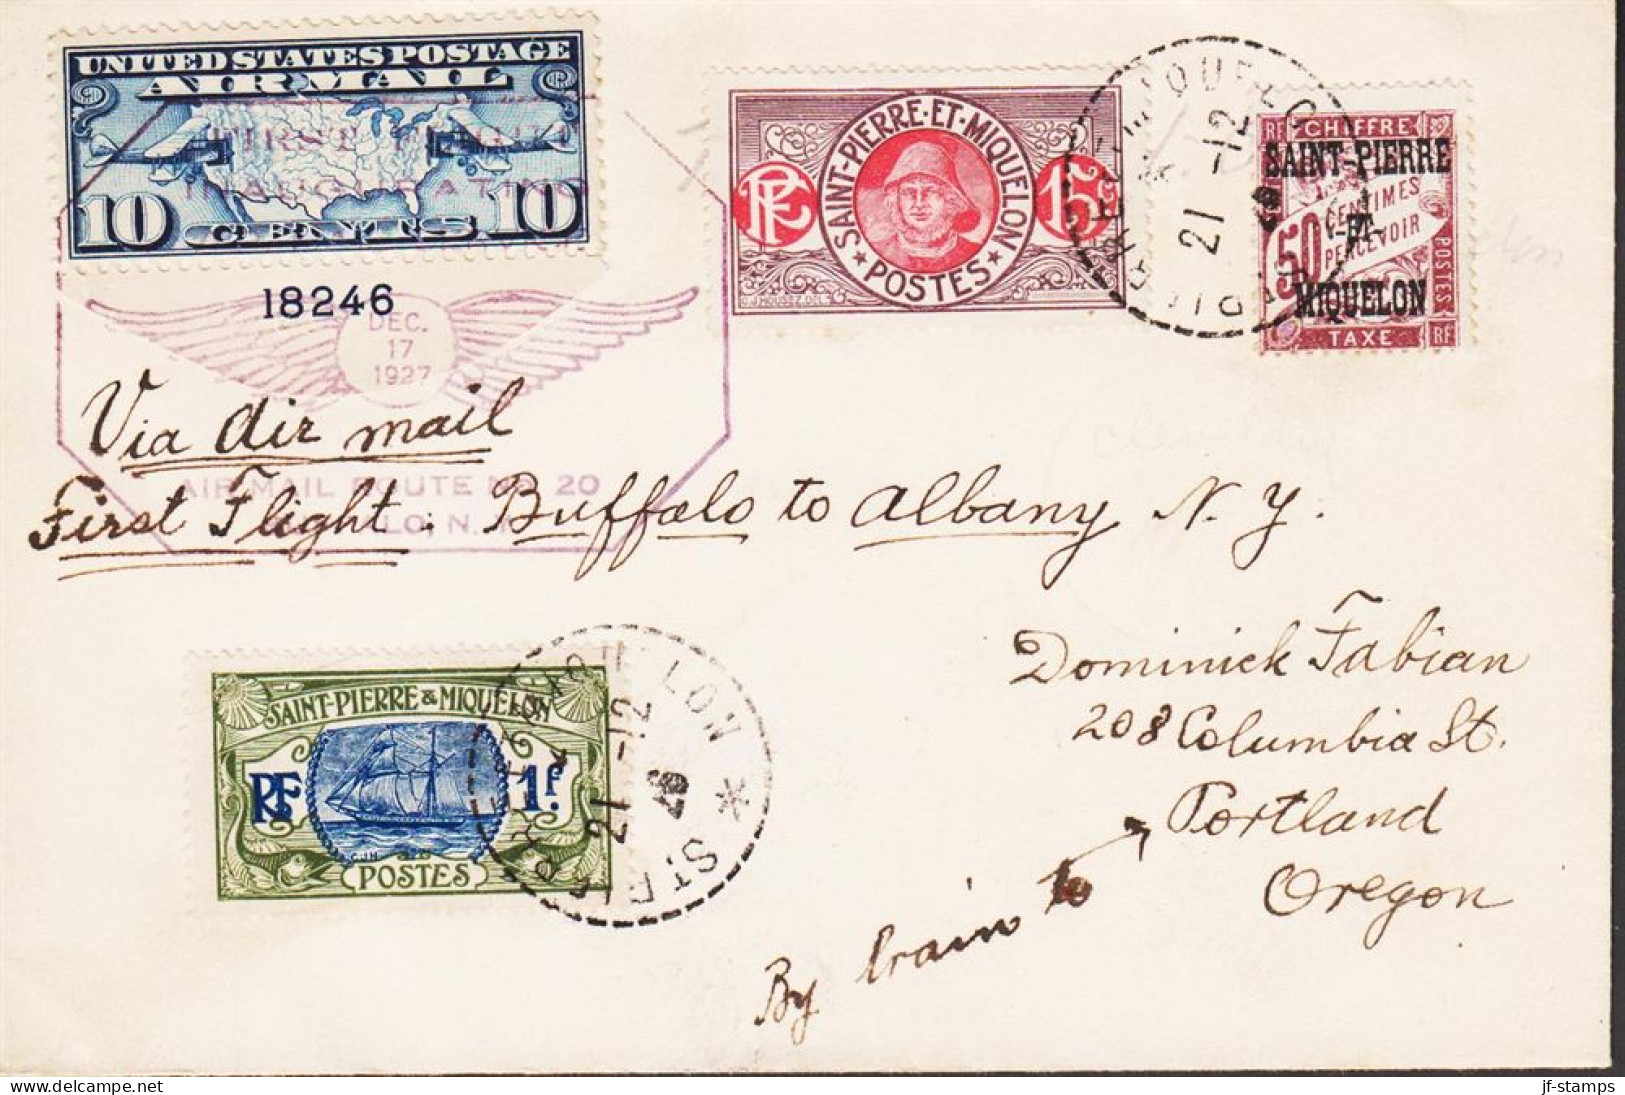 UNITED STATES POSTAGE
AIR MAIL
FIRST FLIGHT
INAUGURATING
10 CENTS 10
18246
DEC.
17
1927
AIR MAIL ROUTE NO. 20
LO, N.
SAINT-PIERRE-ET-MIQUELON
RF
15c
POSTES
21 -12
28
RF CHIFFRE
SAINT-PIERRE
-ET-
MIQUELON
50 CENTIMES
PERCEVOIR
POSTES
TAXE RF
Via air mail
First Flight: Buffalo to Albany N.Y.
Dominick Fabian
208 Columbia St.
Portland
Oregon
By train to
SAINT-PIERRE & MIQUELON
RF 1f.
POSTES
ST PIERRE ET MIQUELON
21 -12
28
jf-stamps